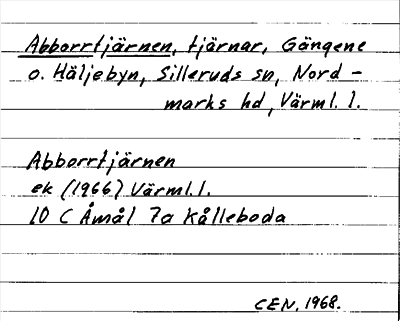 Abborrtjärnen, tjärnar, Gängene
o. Häljebyn, Silleruds sn, Nord-
marks hd, Värml. l.
Abborrtjärnen
ek (1966) Värml. l.
10 C Åmål 7a Kålleboda
CEN, 1968.